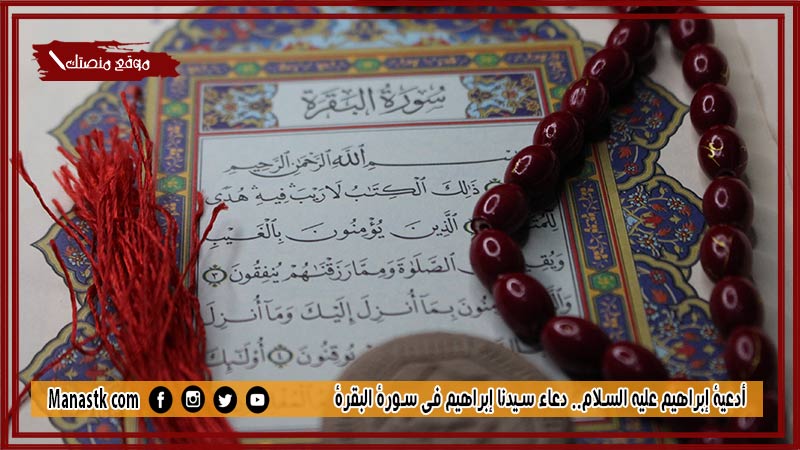 موقع منصتك
سُورَةُ البَقَرَة
بِسْمِ اللَّهِ الرَّحْمَٰنِ الرَّحِيمِ
ذَٰلِكَ الْكِتَٰبُ لَا رَيْبَ فِيهِ هُدًى
الَّذِينَ يُؤْمِنُونَ بِالْغَيْبِ
الصَّلَوٰةَ وَمِمَّا رَزَقْنَٰهُمْ يُنفِقُونَ ٣
بِمَآ أُنزِلَ إِلَيْكَ وَمَآ أُنزِلَ
يُوقِنُونَ ٤ أُوْلَٰٓئِكَ
أدعية إبراهيم عليه السلام.. دعاء سيدنا إبراهيم فى سورة البقرة
Manastk com